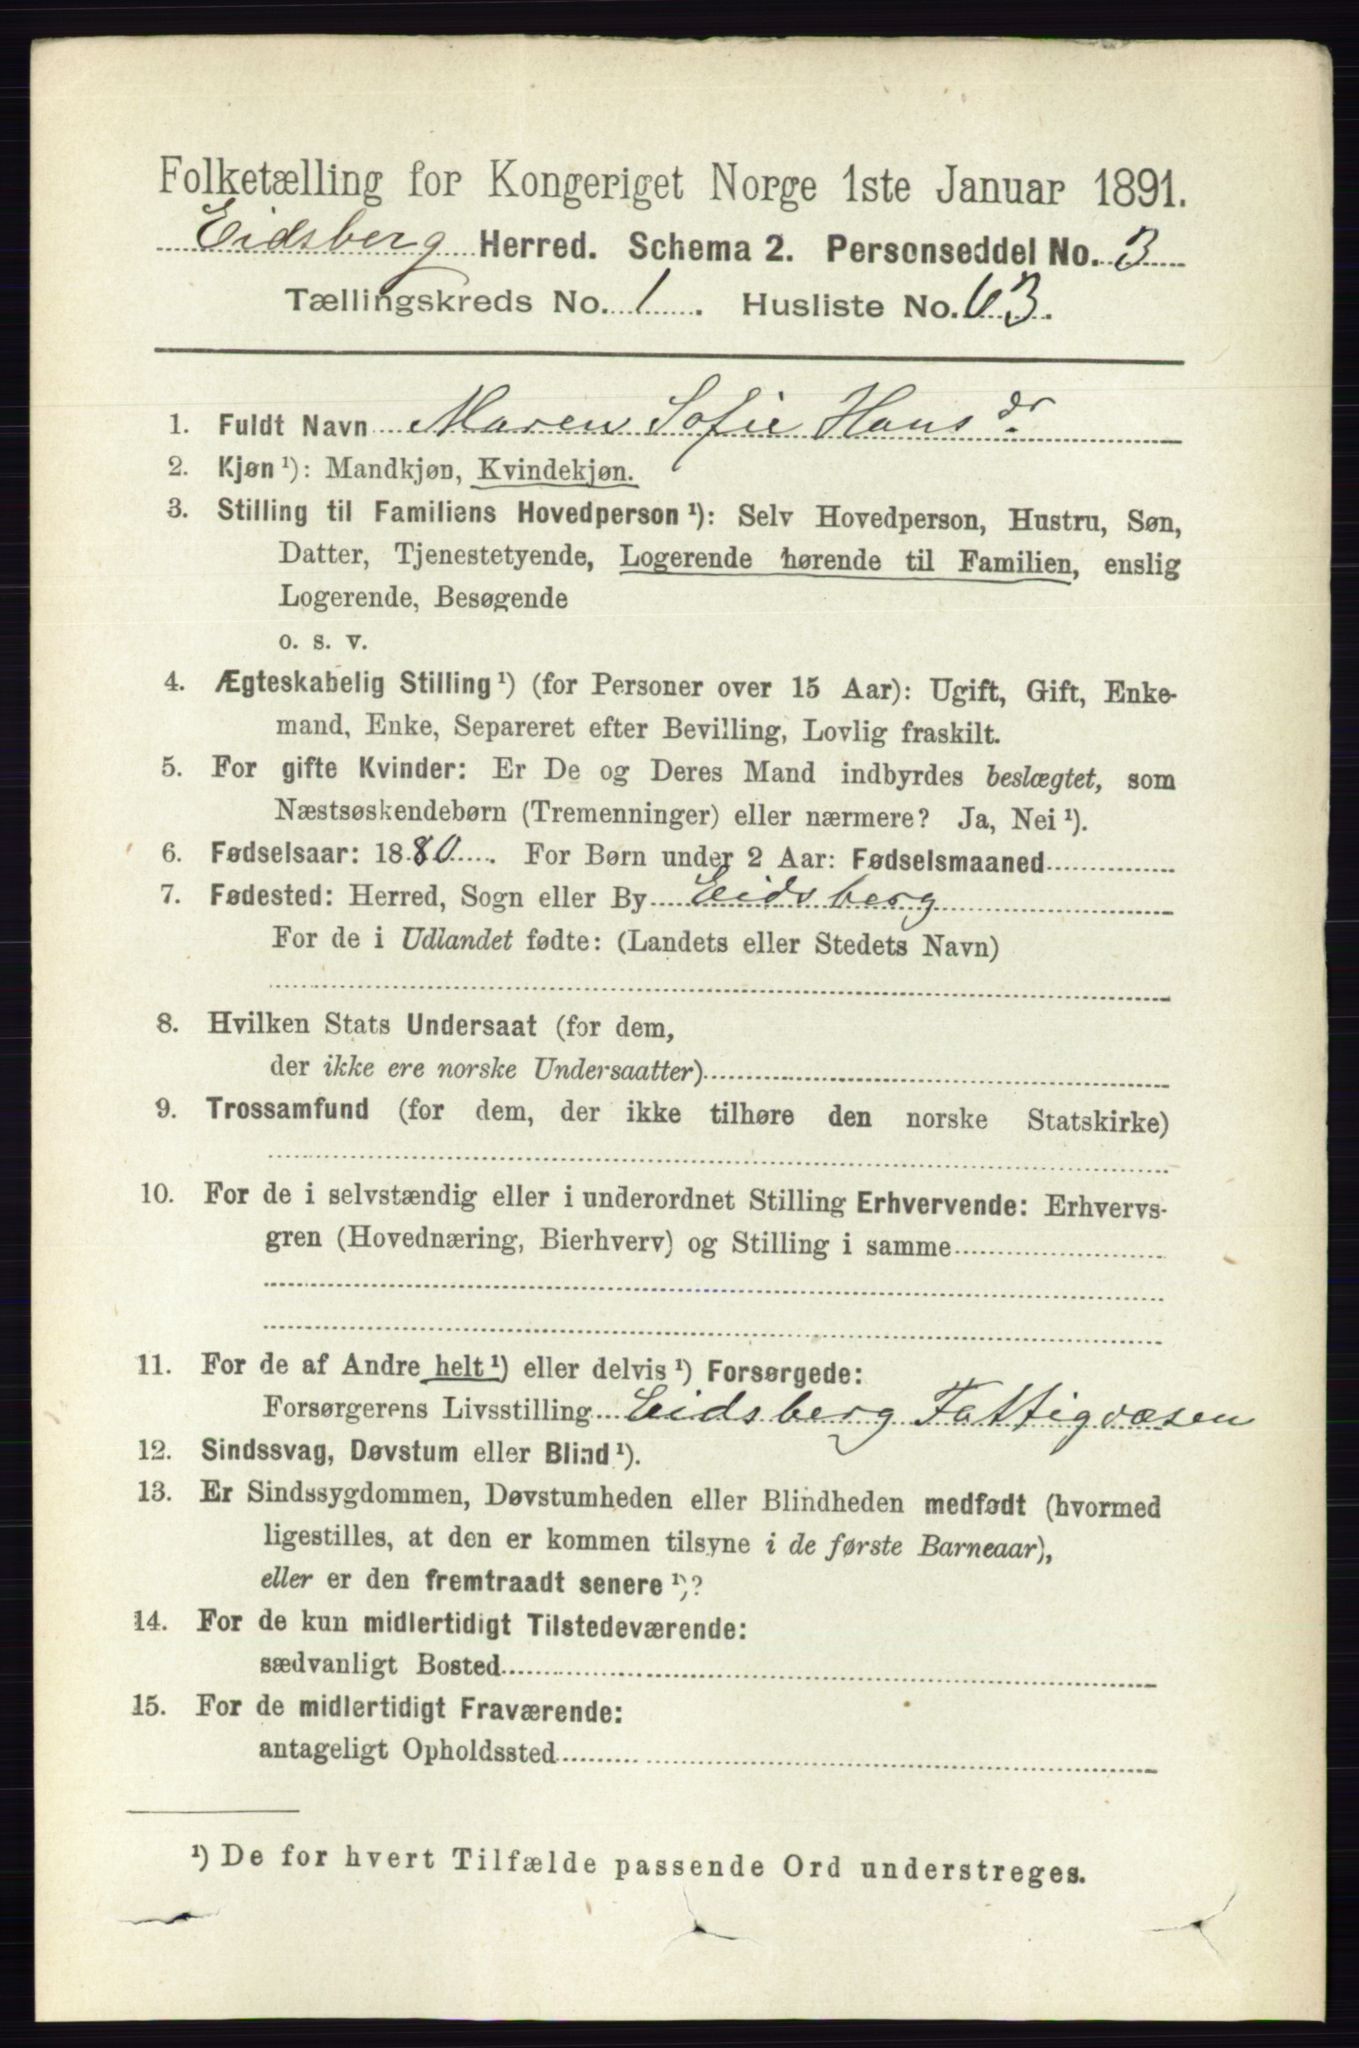 Folketælling for Kongeriget Norge 1ste Januar 1891.
Eidsberg Herred. Schema 2. Personseddel No. 3
Tællingskreds No. 1. Husliste No. 63.
1. Fuldt Navn Maren Sofie Hansdr.
2. Kjøn ¹): Mandkjøn, Kvindekjøn.
3. Stilling til Familiens Hovedperson ¹): Selv Hovedperson, Hustru, Søn,
Datter, Tjenestetyende, Logerende hørende til Familien, enslig
Logerende, Besøgende
o. s. v.
4. Ægteskabelig Stilling ¹) (for Personer over 15 Aar): Ugift, Gift, Enke-
mand, Enke, Separeret efter Bevilling, Lovlig fraskilt.
5. For gifte Kvinder: Er De og Deres Mand indbyrdes beslægtet, som
Næstsøskendebørn (Tremenninger) eller nærmere? Ja, Nei ¹).
6. Fødselsaar: 1880. For Børn under 2 Aar: Fødselsmaaned
7. Fødested: Herred, Sogn eller By Eidsberg
For de i Udlandet fødte: (Landets eller Stedets Navn)
8. Hvilken Stats Undersaat (for dem,
der ikke ere norske Undersaatter)
9. Trossamfund (for dem, der ikke tilhøre den norske Statskirke)
10. For de i selvstændig eller i underordnet Stilling Erhvervende: Erhvervs-
gren (Hovednæring, Bierhverv) og Stilling i samme
11. For de af Andre helt ¹) eller delvis ¹) Forsørgede:
Forsørgerens Livsstilling Eidsberg Fattigvæsen
12. Sindssvag, Døvstum eller Blind ¹).
13. Er Sindssygdommen, Døvstumheden eller Blindheden medfødt (hvormed
ligestilles, at den er kommen tilsyne i de første Barneaar),
eller er den fremtraadt senere ¹)?
14. For de kun midlertidigt Tilstedeværende:
sædvanligt Bosted
15. For de midlertidigt Fraværende:
antageligt Opholdssted
¹) De for hvert Tilfælde passende Ord understreges.